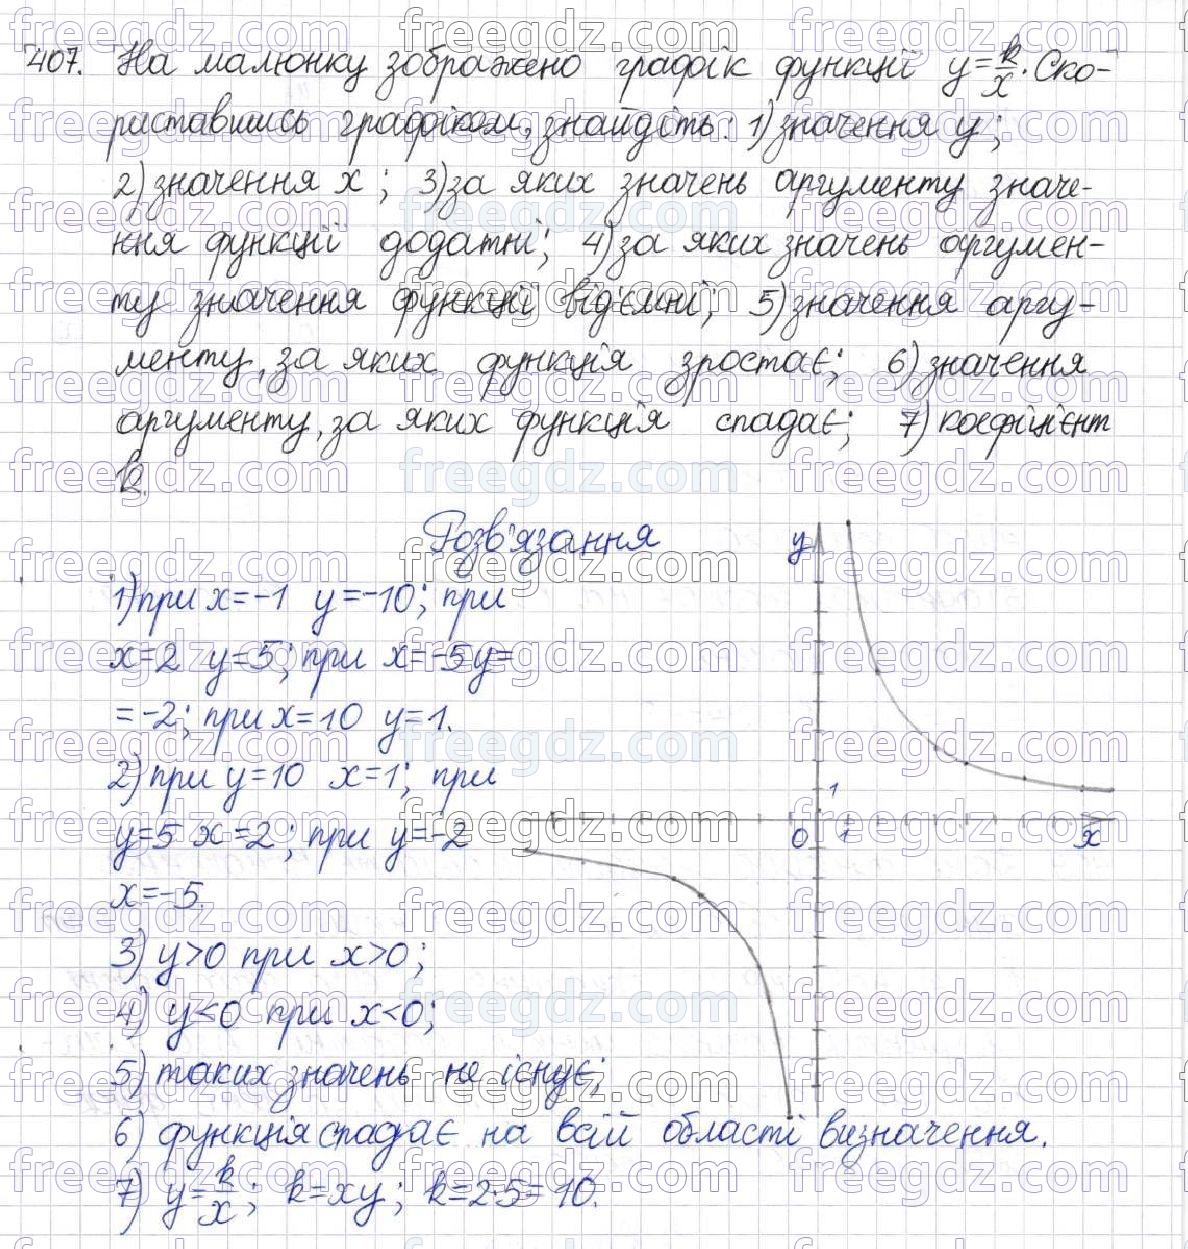 407. На малюнку зображено графік функції y=k/x. Ско-
риставшись графіком, знайдіть: 1) значення y;
2) значення x; 3) за яких значень аргументу значе-
ння функції додатні; 4) за яких значень аргумен-
ту значення функції від'ємні; 5) значення аргу-
менту, за яких функція зростає; 6) значення
аргументу, за яких функція спадає; 7) коефіцієнт
k.
Розв'язання
1) при x=-1 y=-10; при
x=2 y=5; при x=-5 y=
=-2; при x=10 y=1.
2) при y=10 x=1; при
y=5 x=2; при y=-2
x=-5.
3) y>0 при x>0;
4) y<0 при x<0;
5) таких значень не існує;
6) функція спадає на всій області визначення.
7) y=k/x; k=xy; k=2·5=10.
y
1
0 1 x
freegdz.com